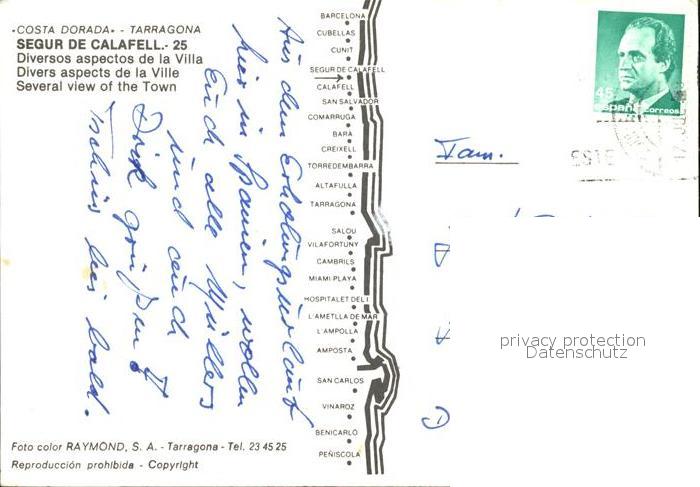 «COSTA DORADA» - TARRAGONA
SEGUR DE CALAFELL.- 25
Diversos aspectos de la Villa
Divers aspects de la Ville
Several view of the Town
Aus dem Erholungsurlaub
hier in Spanien, wollen
Euch alle Müllers
und euch
grüßen
Tschüs bis bald.
Foto color RAYMOND, S. A. - Tarragona - Tel. 23 45 25
Reproducción prohibida - Copyright
BARCELONA
CUBELLAS
CUNIT
SEGUR DE CALAFELL
CALAFELL
SAN SALVADOR
COMARRUGA
BARA
CREIXELL
TORREDEMBARRA
ALTAFULLA
TARRAGONA
SALOU
VILAFORTUNY
CAMBRILS
MIAMI PLAYA
HOSPITALET DEL I.
L'AMETLLA DE MAR
L'AMPOLLA
AMPOSTA
SAN CARLOS
VINAROZ
BENICARLO
PEÑISCOLA
45
España Correos
Fam.
privacy protection
Datenschutz